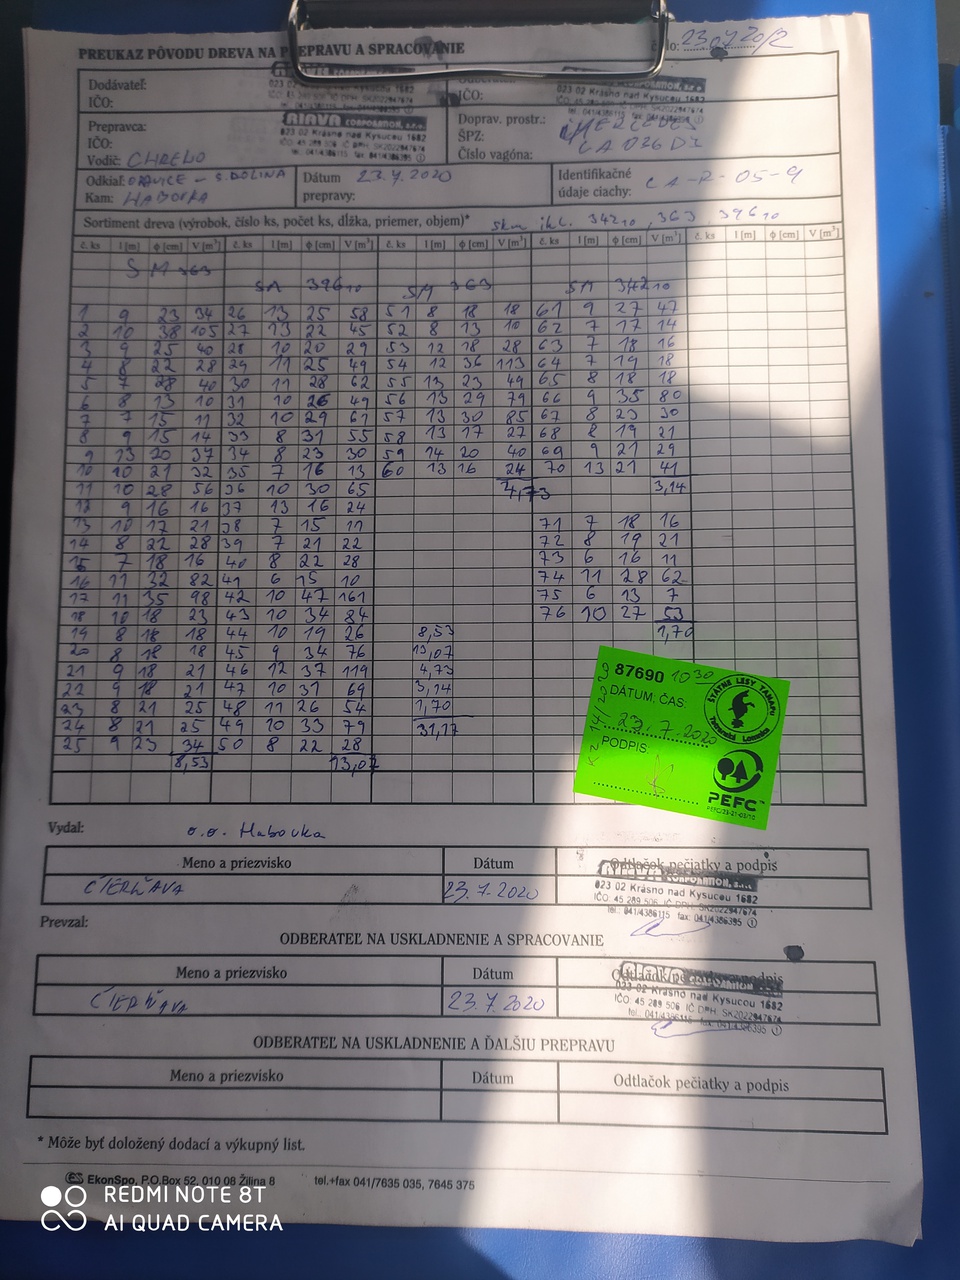 PREUKAZ PÔVODU DREVA NA PREPRAVU A SPRACOVANIE
23.07.20/2
Dodávateľ:
IČO:
023 02 Krásno nad Kysucou 1682
IČO:
023 02 Krásno nad Kysucou 1682
Prepravca:
IČO:
Vodič: CHREŇO
RIAVA CORPORATION, s.r.o.
023 02 Krásno nad Kysucou 1682
IČO: 45 289 506 IČ DPH: SK2022947674
tel.: 041/4386115 fax: 041/4386395
Doprav. prostr.: MERCEDES
ŠPZ: CA 026 DZ
Číslo vagóna:
Odkiaľ: ORAVICE - S. DOLINA
Kam: HABOVKA
Dátum prepravy: 23.7.2020
Identifikačné údaje ciachy: CA-R-05-9
Sortiment dreva (výrobok, číslo ks, počet ks, dĺžka, priemer, objem)* 342 10, 363, 396 10
č. ks l [m] ϕ [cm] V [m³] č. ks l [m] ϕ [cm] V [m³] č. ks l [m] ϕ [cm] V [m³] č. ks l [m] ϕ [cm] V [m³] č. ks l [m] ϕ [cm] V [m³]
SM 363
SM 396 10 SM 363 SM 342 10
1 9 23 34 26 13 25 58 51 8 18 18 61 9 27 47
2 10 38 105 27 13 22 45 52 8 13 10 62 7 17 14
3 9 25 40 28 10 20 29 53 12 18 28 63 7 18 16
4 8 22 28 29 11 25 49 54 12 36 113 64 7 19 18
5 7 28 40 30 11 28 62 55 13 23 49 65 8 18 18
6 8 13 10 31 10 26 49 56 13 29 79 66 9 35 80
7 7 15 11 32 10 29 61 57 13 30 85 67 8 23 30
8 9 15 14 33 8 31 55 58 13 17 27 68 8 19 21
9 13 20 37 34 8 23 30 59 14 20 40 69 9 21 29
10 10 21 32 35 7 16 13 60 13 16 24 70 13 21 41
11 10 28 56 36 10 30 65 4,73 3,14
12 9 16 16 37 13 16 24
13 10 17 21 38 7 15 11 71 7 18 16
14 8 22 28 39 7 21 22 72 8 19 21
15 7 18 16 40 8 22 28 73 6 16 11
16 11 32 82 41 6 15 10 74 11 28 62
17 11 35 98 42 10 47 161 75 6 13 7
18 10 18 23 43 10 34 84 76 10 27 53
19 8 18 18 44 10 19 26 8,53 1,70
20 8 18 18 45 9 34 76 13,07
21 9 18 21 46 12 37 119 4,73
22 9 18 21 47 10 31 69 3,14
23 8 21 25 48 11 26 54 1,70
24 8 21 25 49 10 33 79 31,17
25 9 23 34 50 8 22 28
8,53 13,07
87690 10 30
DÁTUM; ČAS:
23.7.2020
PODPIS:
ŠTÁTNE LESY TANAPU
Tatranská Lomnica
PEFC™
PEFC/23-21-03/10
Vydal: o.o. Habovka
Meno a priezvisko Dátum Odtlačok pečiatky a podpis
ČIERŇAVA 23.7.2020
CORPORATION, s.r.o.
023 02 Krásno nad Kysucou 1682
IČO: 45 289 506 IČ DPH: SK2022947674
tel.: 041/4386115 fax: 041/4386395
Prevzal:
ODBERATEĽ NA USKLADNENIE A SPRACOVANIE
Meno a priezvisko Dátum Odtlačok pečiatky a podpis
ČIERŇAVA 23.7.2020
023 02 Krásno nad Kysucou 1682
IČO: 45 289 506 IČ DPH: SK2022947674
tel.: 041/4386115 fax: 041/4386395
ODBERATEĽ NA USKLADNENIE A ĎALŠIU PREPRAVU
Meno a priezvisko Dátum Odtlačok pečiatky a podpis
* Môže byť doložený dodací a výkupný list.
EkonSpo, P.O.Box 52, 010 08 Žilina 8 tel.+fax 041/7635 035, 7645 375
REDMI NOTE 8T
AI QUAD CAMERA